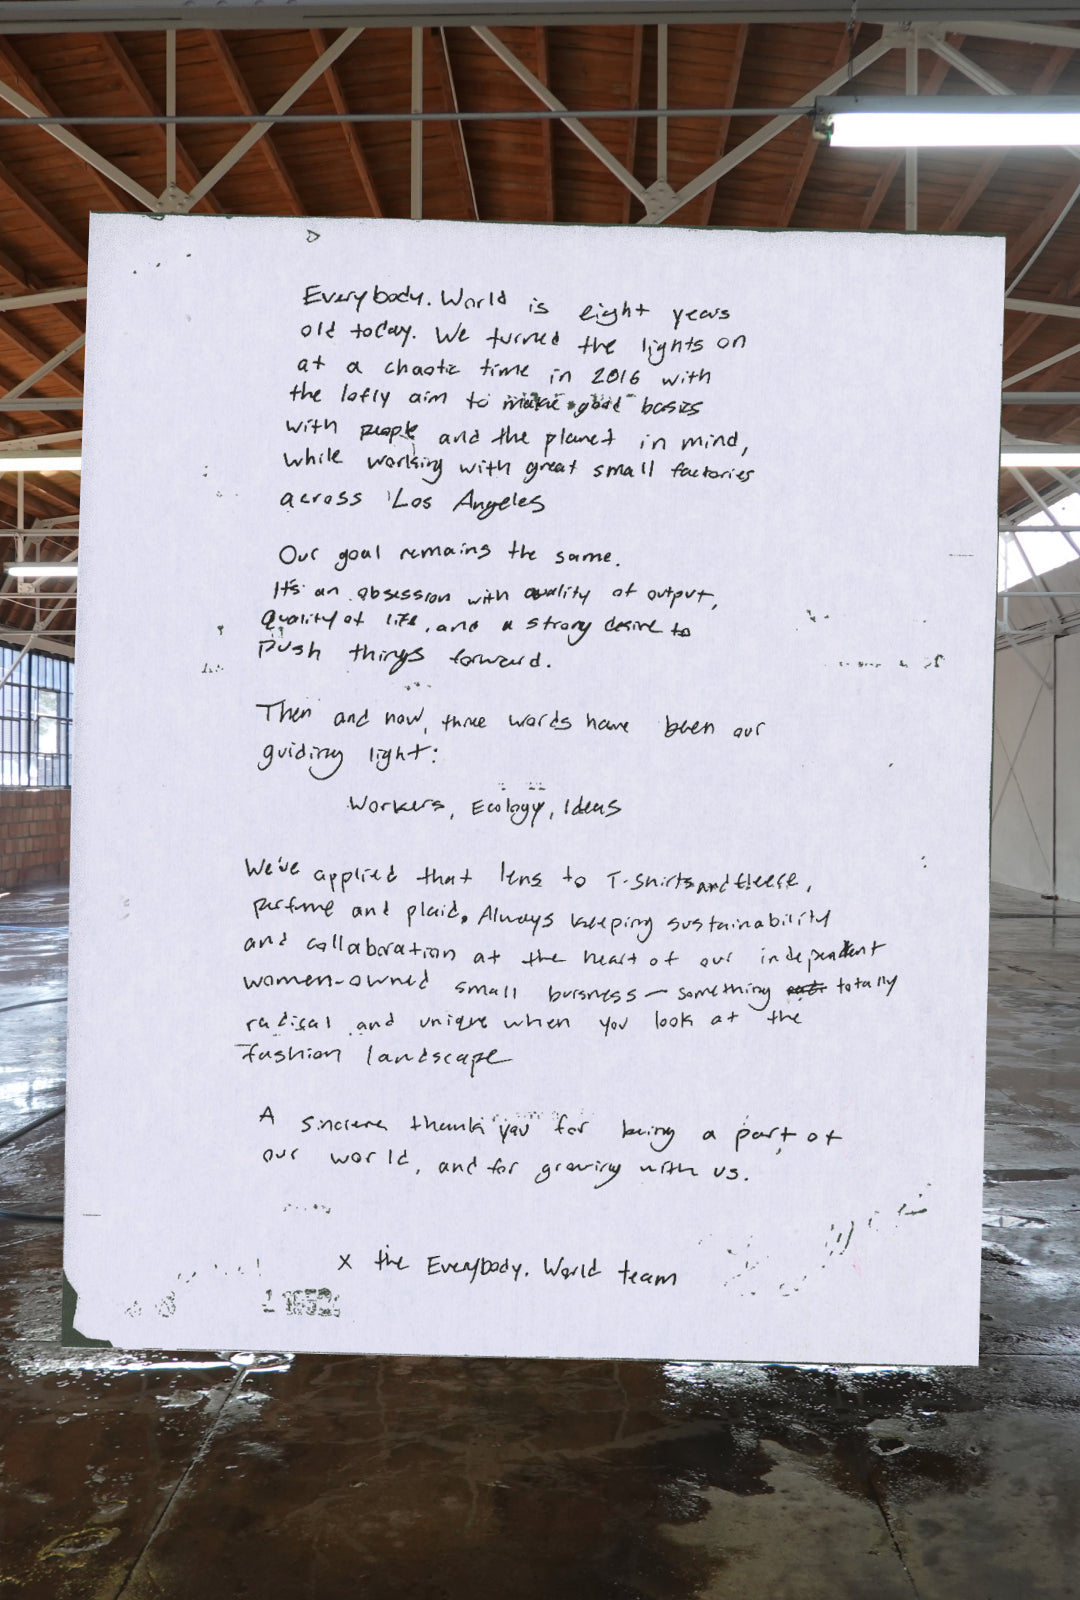 Everybody.World is eight years
old today. We turned the lights on
at a chaotic time in 2016 with
the lofty aim to make good basics
with people and the planet in mind,
while working with great small factories
across Los Angeles
Our goal remains the same.
It's an obsession with quality of output,
quality of life, and a strong desire to
push things forward.
Then and now, three words have been our
guiding light:
Workers, Ecology, Ideas
We've applied that lens to T-Shirts and fleece,
perfume and plaid. Always keeping sustainability
and collaboration at the heart of our independent
women-owned small buisness — something totally
radical and unique when you look at the
fashion landscape
A sincere thank you for being a part of
our world, and for growing with us.
x the Everybody.World team